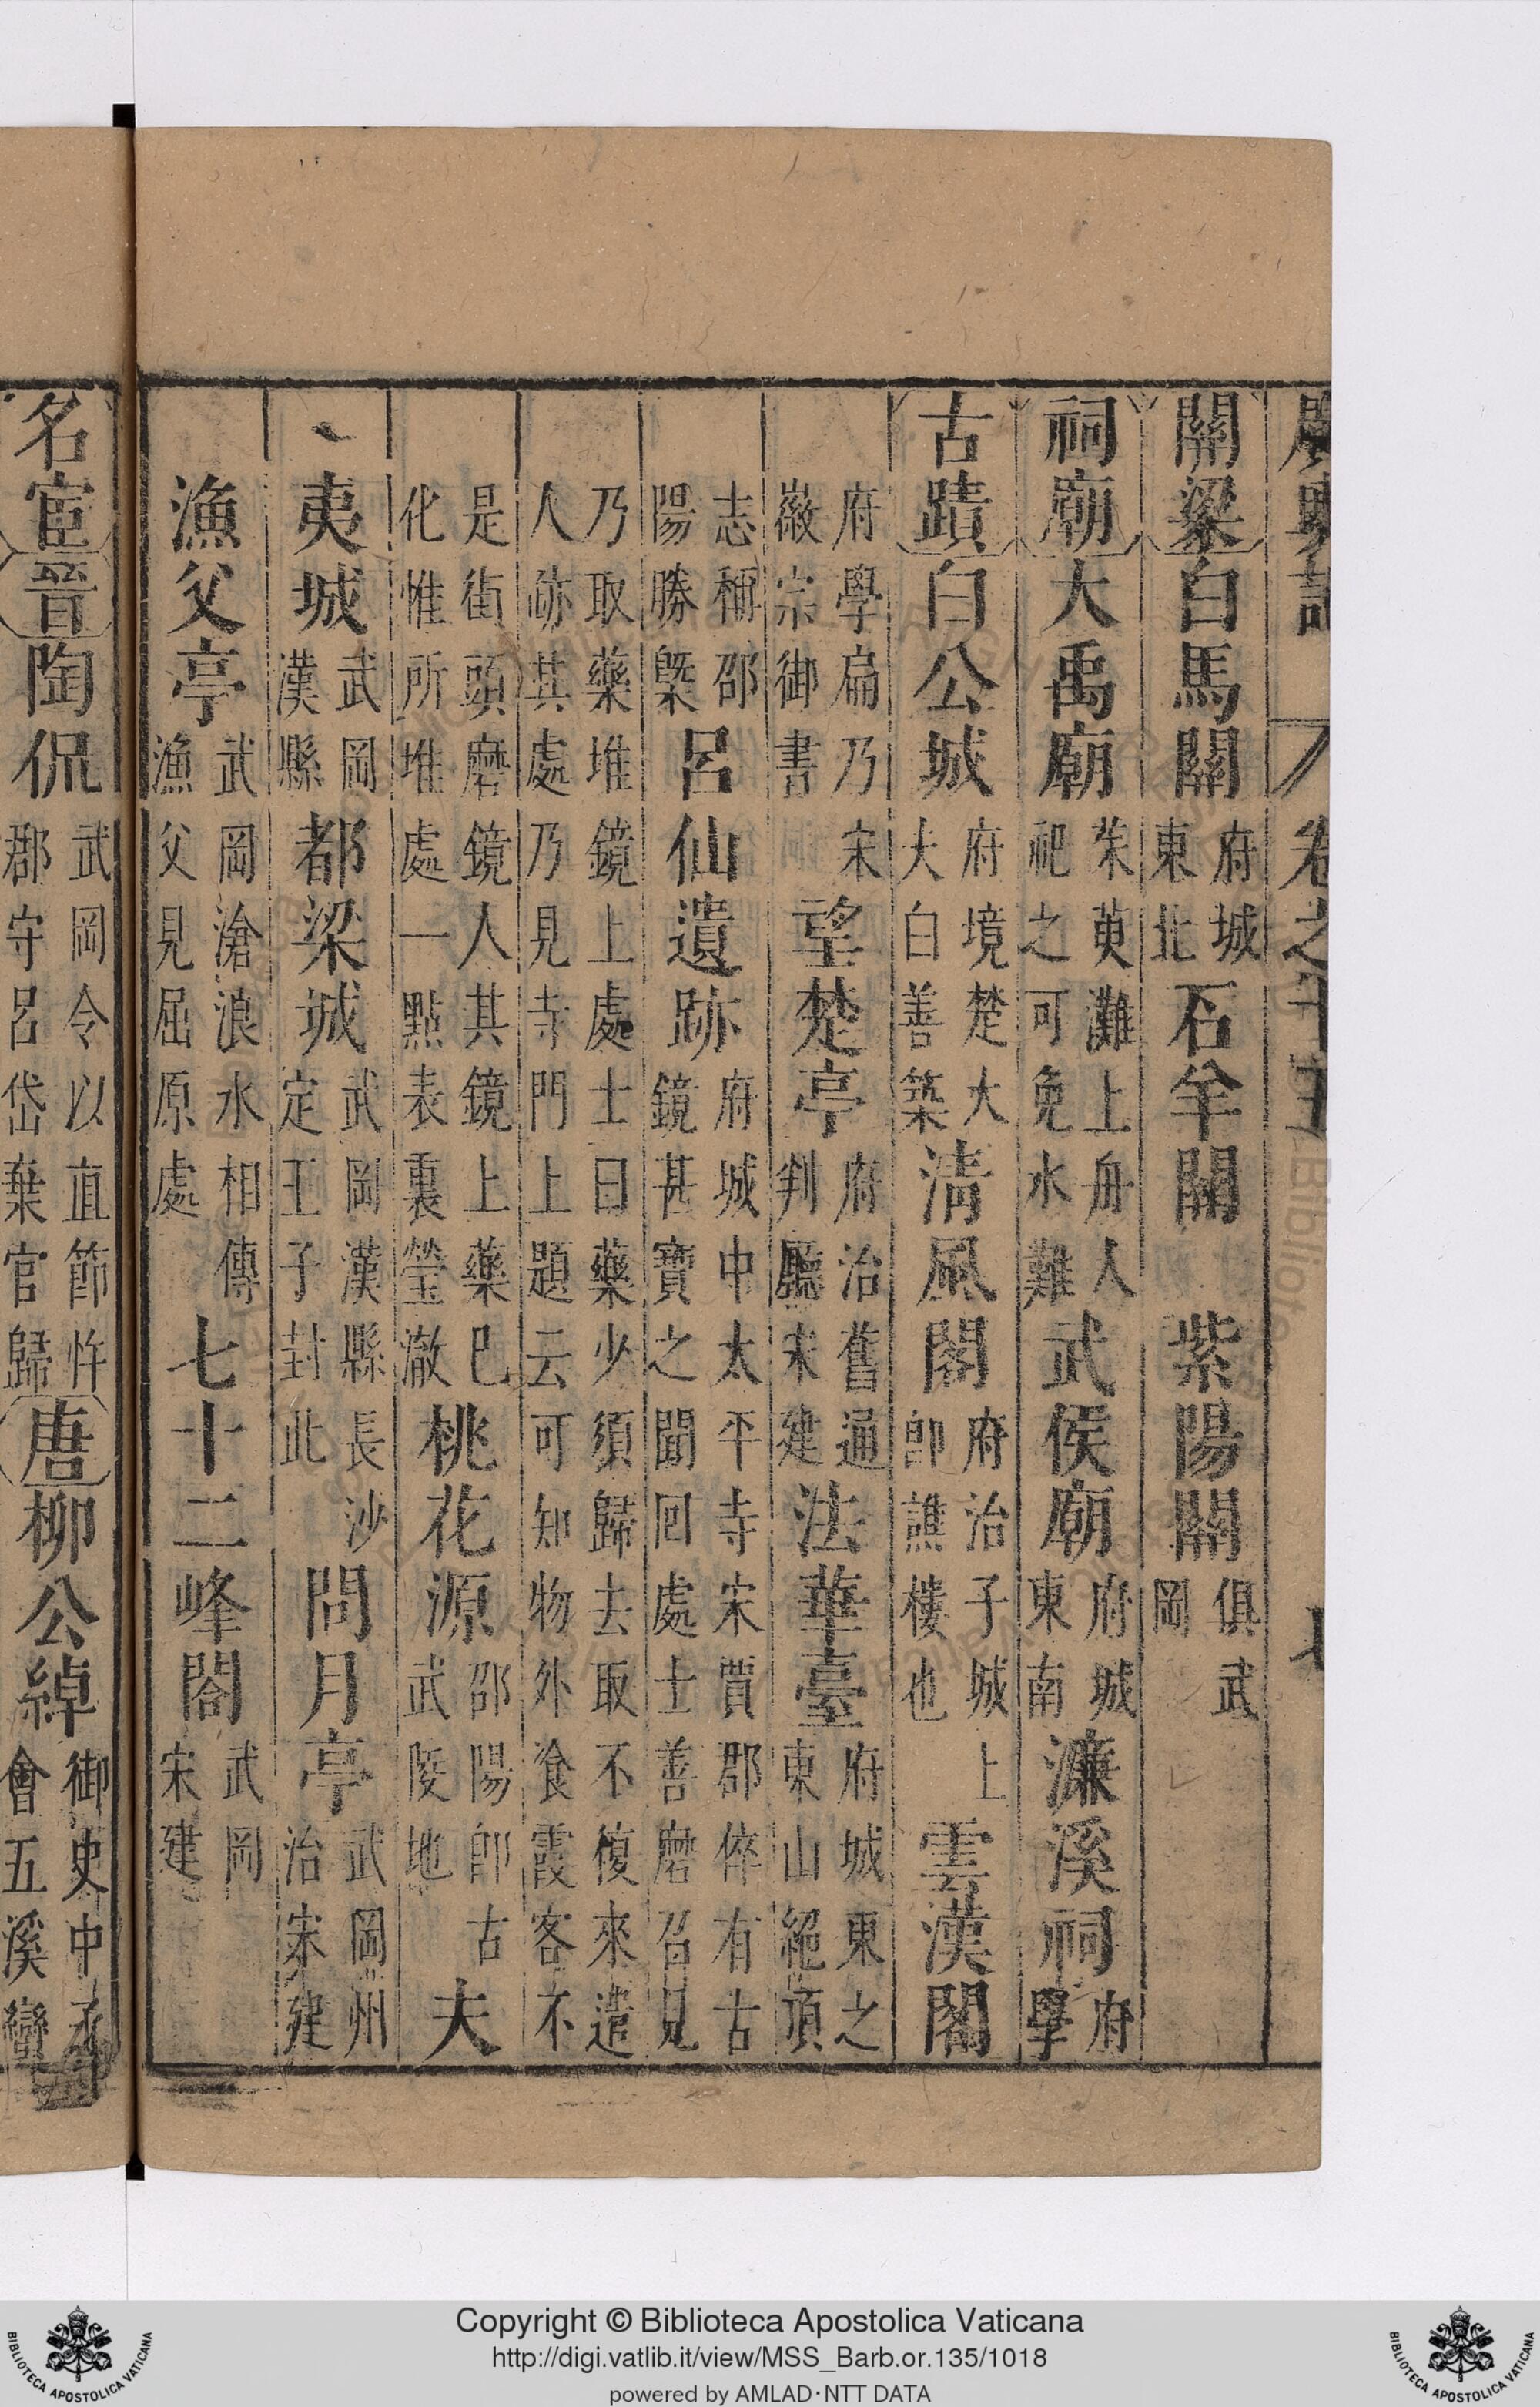 廣輿記 卷之十五
關梁 白馬關 府城東北 石羊關 紫陽關 俱武岡
祠廟 大禹廟 茱萸灘上舟人祀之可免水難 武侯廟 府城東南 濂溪祠 府學
古蹟 白公城 府境楚大大白善築 清風閣 府治子城上卽譙樓也 雲漢閣
府學扁乃宋徽宗御書 望楚亭 府治舊通判廳宋建 法華臺 府城東之東山絕頂
志稱邵陽勝槩 呂仙遺跡 府城中太平寺宋賈郡倅有古鏡甚寶之聞回處士善磨召見
乃取藥堆鏡上處士曰藥少須歸去取不復來遣人跡其處乃見寺門上題云可知物外飡霞客不
是街頭磨鏡人其鏡上藥已化惟所堆處一點表裏瑩澈 桃花源 邵陽卽古武陵地 夫
夷城 武岡漢縣 都梁城 武岡漢縣長沙定王子封此 問月亭 武岡州治宋建
漁父亭 武岡滄浪水相傳漁父見屈原處 七十二峰閣 武岡宋建
名宦 晉 陶侃 武岡令以直節忤郡守呂岱棄官歸 唐 柳公綽 御史中丞會五溪蠻
Copyright © Biblioteca Apostolica Vaticana
http://digi.vatlib.it/view/MSS_Barb.or.135/1018
powered by AMLAD·NTT DATA
BIBLIOTECA APOSTOLICA VATICANA
BIBLIOTECA APOSTOLICA VATICANA